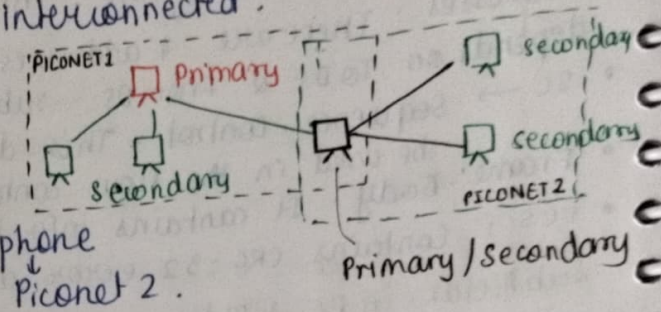 interconnected.
PICONET1
Primary
seconday
secondary
secondary
PICONET 2
phone
↓
Piconet 2.
Primary/Secondary